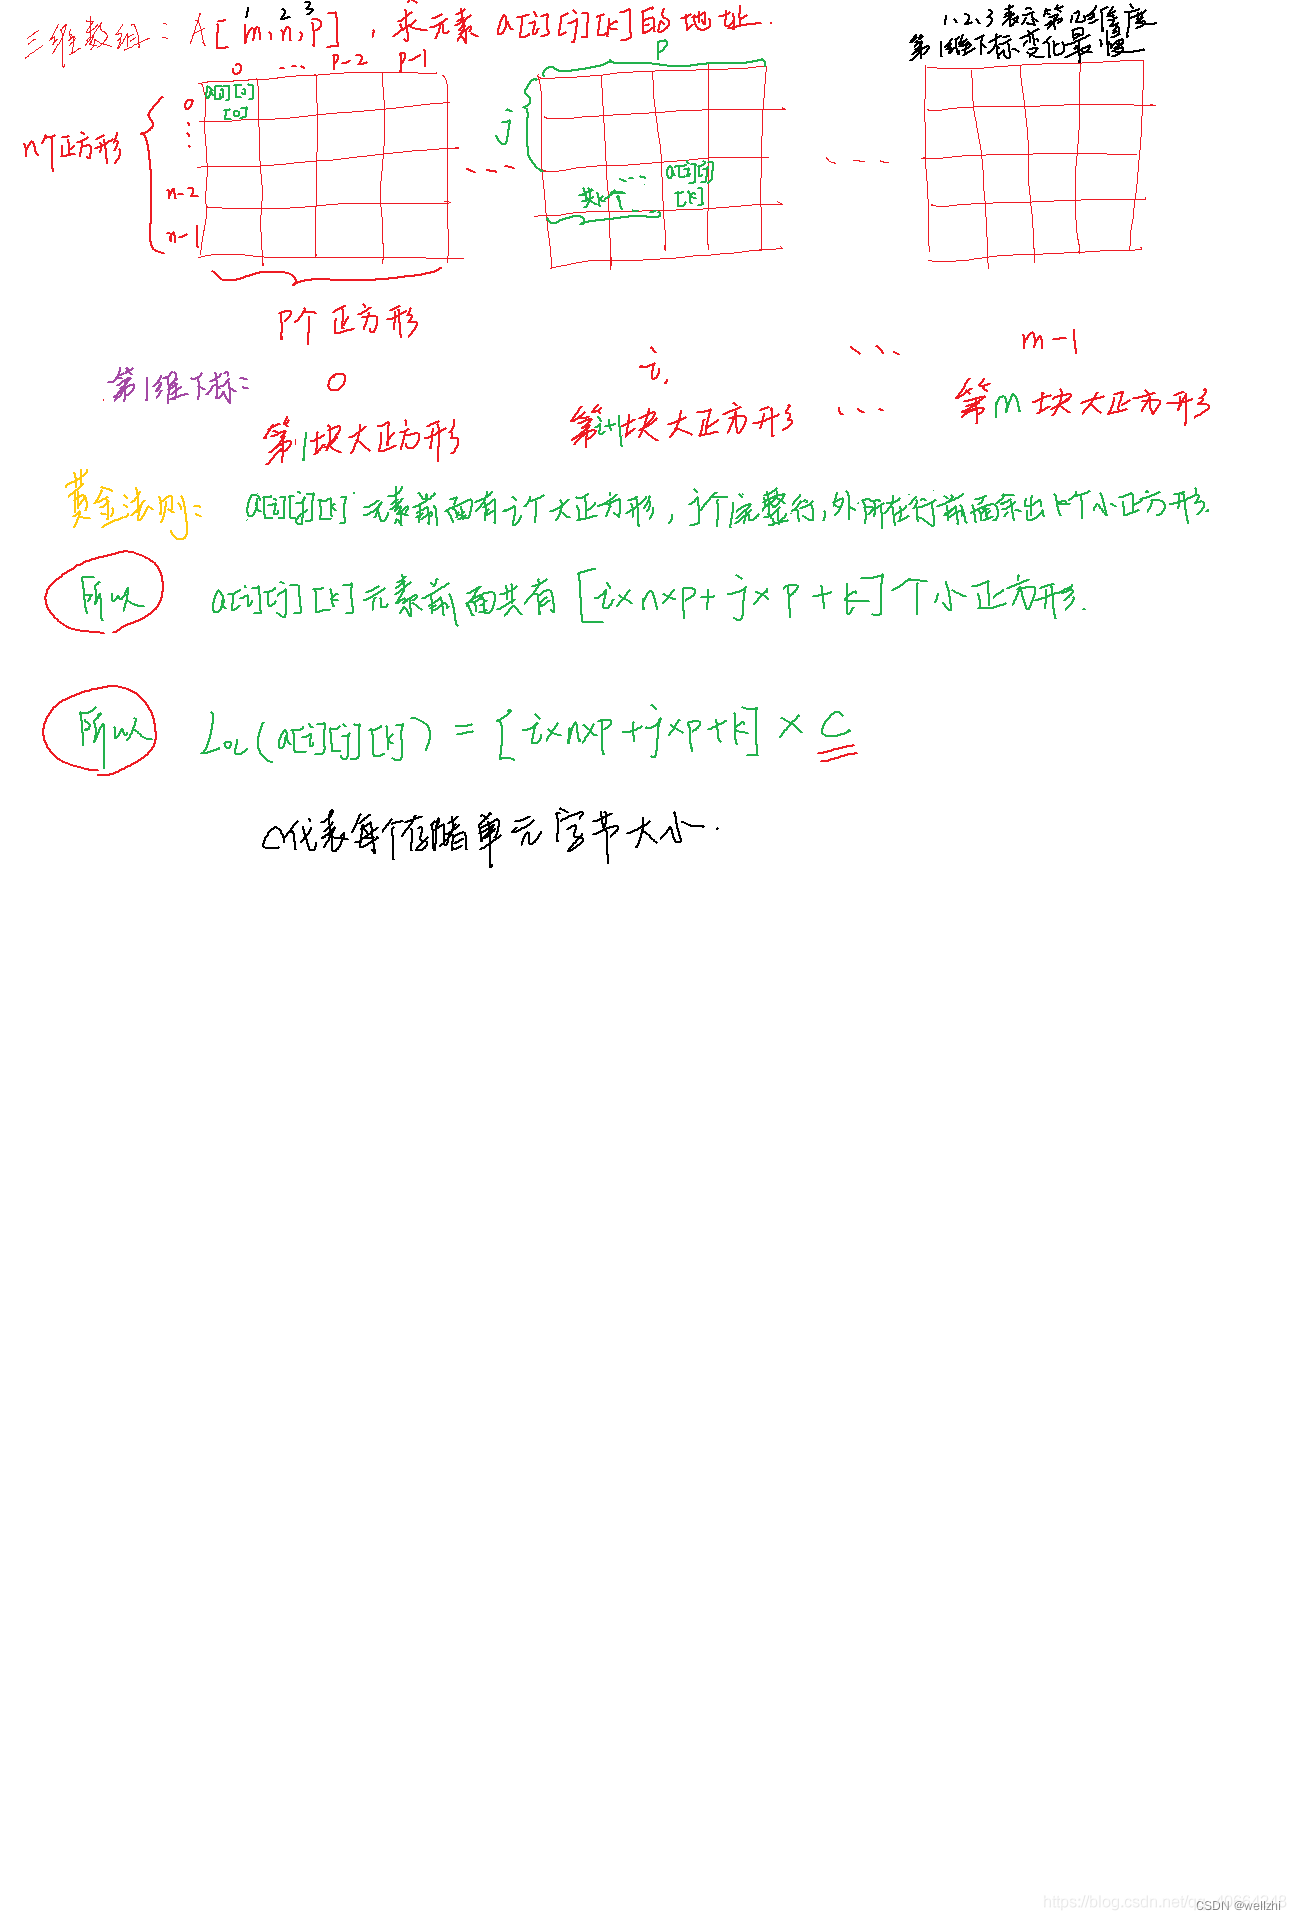 三维数组: A[m,n,p], 求元素 a[i][j][k]的地址.
1 2 3
1、2、3表示第几维度
第1维下标变化最慢
0 ... p-2 p-1
p
n个正方形
0
n-2
n-1
a[0][0]
[0]
j
... a[i][j]
[k]
共k个
p个正方形
第1维下标: 0 i ... m-1
第1块大正方形 第i+1块大正方形 ... 第m块大正方形
黄金法则: a[i][j][k]元素前面有i个大正方形, j个完整行, 外所在行前面余出k个小正方形.
所以 a[i][j][k]元素前面共有[i×n×p+j×p+k]个小正方形.
所以 Loc(a[i][j][k]) = [i×n×p+j×p+k] × C
C代表每个存储单元字节大小.
CSDN @wellzhi